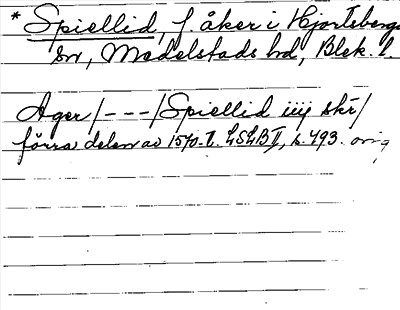 * Spiellid, f. åker i Hjortsberga
sn, Medelstads hd, Blek. l.
Ager/---/Spiellid iiij skr/
förra delen av 1570-t. LSLB II, s. 493. orig